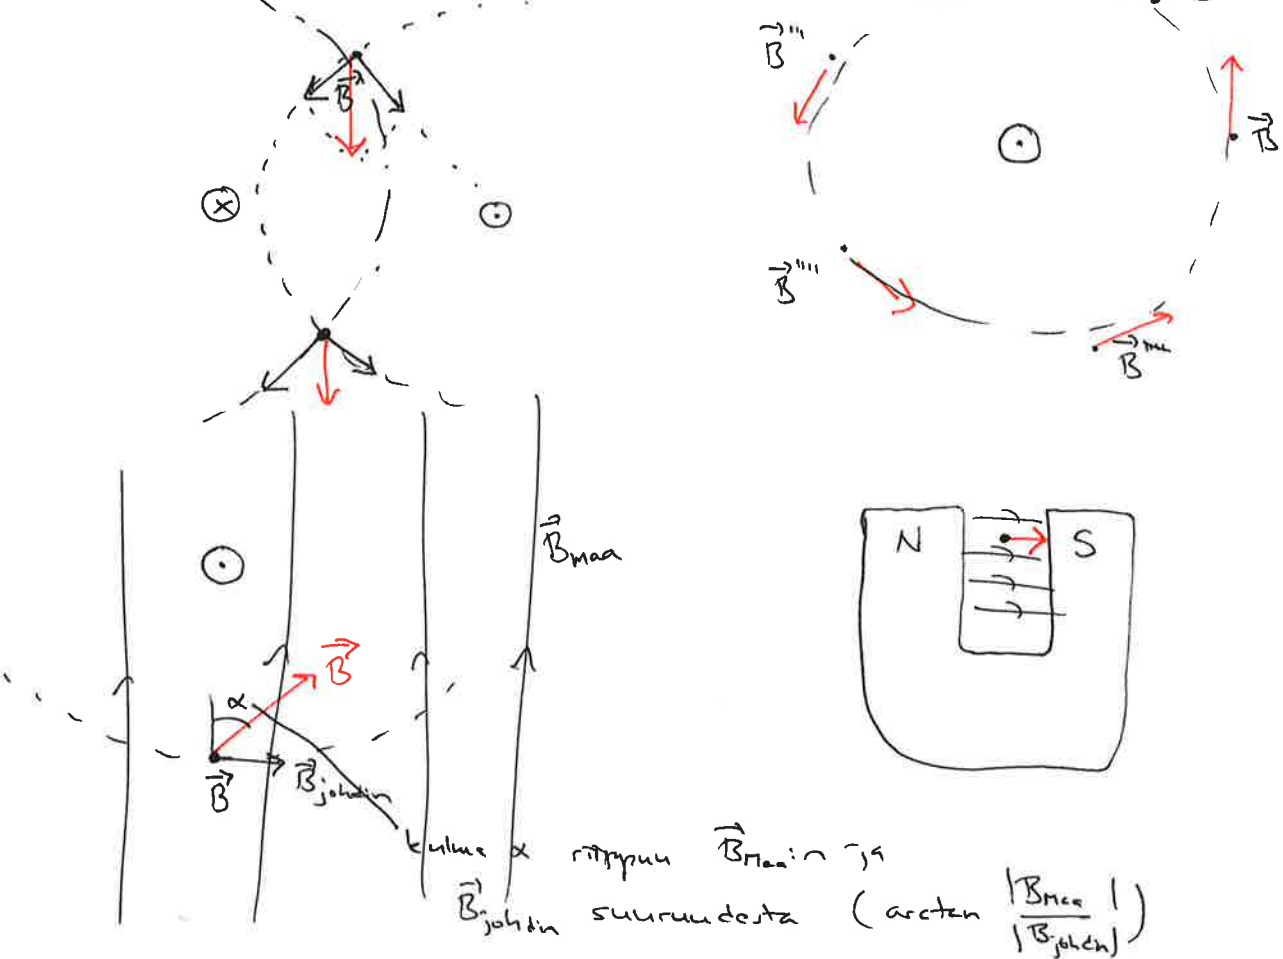 B⃗
B⃗'''
B⃗
B⃗''''
B⃗'''''
B⃗maa
N S
α
B⃗
B⃗
B⃗johdin
kulma α riippuu B⃗Maa:n ja
B⃗johdin suuruudesta (arctan |BMaa| / |Bjohdin|)